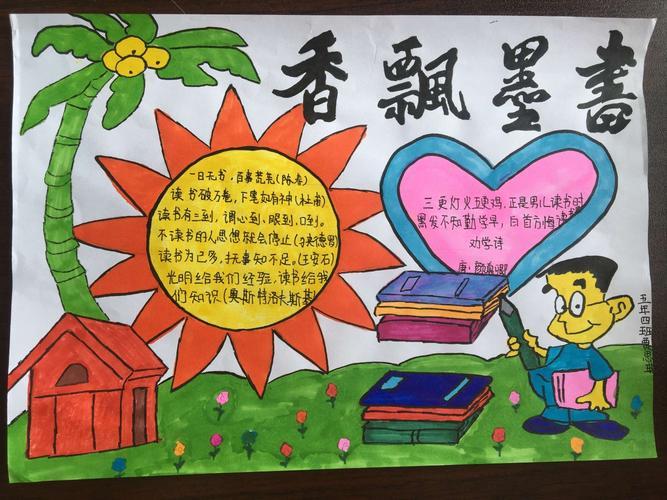 書墨飄香
一日无书，百事荒芜(陈寿)
读书破万卷，下笔如有神(杜甫)
读书有三到，调心到、眼到、口到。
不读书的人思想就会停止(狄德罗)
读书为己多，抚事知不足。(王安石)
光明给我们经验，读书给我
们知识(奥斯特洛夫斯基)
三更灯火五更鸡，正是男儿读书时
黑发不知勤学早，白首方悔读
劝学诗
唐·颜真卿
五年四班